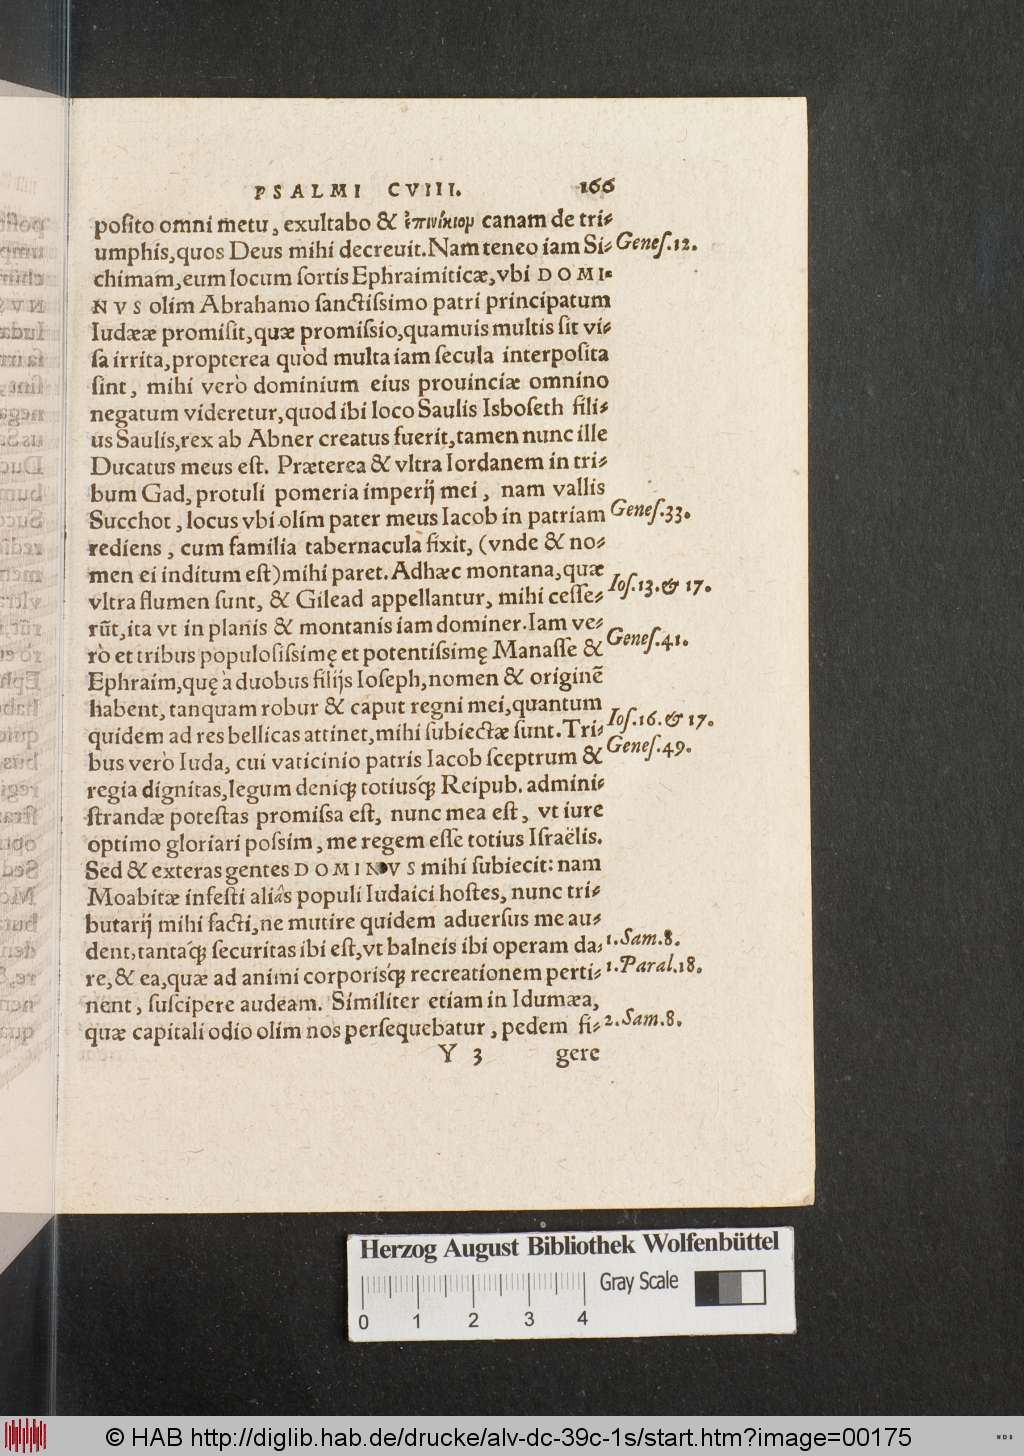 PSALMI CVIII. 166
poſito omni metu, exultabo & ἐπινίκιον canam de tri-
umphis, quos Deus mihi decreuit. Nam teneo iam Si- Geneſ.12.
chimam, eum locum ſortis Ephraimiticæ, vbi DOMI-
NVS olim Abrahamo ſanctiſsimo patri principatum
Iudææ promiſit, quæ promiſsio, quamuis multis ſit vi-
ſa irrita, propterea quòd multa iam ſecula interpoſita
ſint, mihi verò dominium eius prouinciæ omnino
negatum videretur, quod ibi loco Saulis Isboſeth fili-
us Saulis, rex ab Abner creatus fuerit, tamen nunc ille
Ducatus meus eſt. Præterea & vltra Iordanem in tri-
bum Gad, protuli pomeria imperij mei, nam vallis
Succhot, locus vbi olim pater meus Iacob in patriam Geneſ.33.
rediens, cum familia tabernacula fixit, (vnde & no-
men ei inditum eſt) mihi paret. Adhæc montana, quæ
vltra flumen ſunt, & Gilead appellantur, mihi ceſſe- Ioſ.13.& 17.
rũt, ita vt in planis & montanis iam dominer. Iam ve-
rò et tribus populoſiſsimę et potentiſsimę Manaſſe & Geneſ.41.
Ephraim, quę à duobus filijs Ioſeph, nomen & originẽ
habent, tanquam robur & caput regni mei, quantum
quidem ad res bellicas attinet, mihi ſubiectæ ſunt. Tri- Ioſ.16.& 17.
bus verò Iuda, cui vaticinio patris Iacob ſceptrum & Geneſ.49.
regia dignitas, legum deniq́; totiusq́; Reipub. admini-
ſtrandæ poteſtas promiſsa eſt, nunc mea eſt, vt iure
optimo gloriari poſsim, me regem eſſe totius Iſraëlis.
Sed & exteras gentes DOMINVS mihi ſubiecit: nam
Moabitæ infeſti aliâs populi Iudaici hoſtes, nunc tri-
butarij mihi facti, ne mutire quidem aduerſus me au-
dent, tantaq́; ſecuritas ibi eſt, vt balneis ibi operam da- 1.Sam.8.
re, & ea, quæ ad animi corporisq́; recreationem perti- 1.Paral.18.
nent, ſuſcipere audeam. Similiter etiam in Idumæa,
quæ capitali odio olim nos perſequebatur, pedem fi- 2.Sam.8.
Y 3 gere
Herzog August Bibliothek Wolfenbüttel
Gray Scale
0 1 2 3 4
© HAB http://diglib.hab.de/drucke/alv-dc-39c-1s/start.htm?image=00175